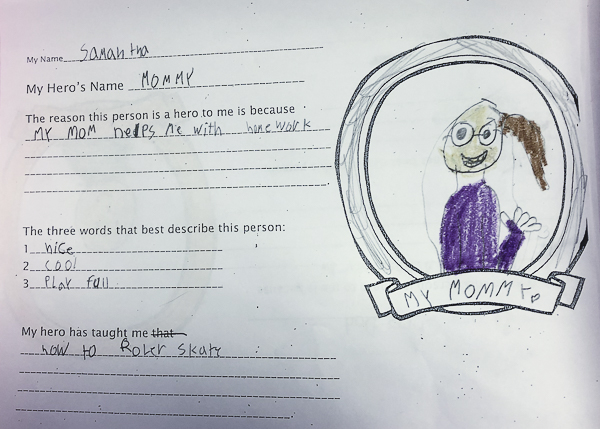 My Name Samantha
My Hero's Name MOMMY
The reason this person is a hero to me is because
MY MOM helps Me with homework
The three words that best describe this person:
1 nice
2 cool
3 Play full
My hero has taught me that
how to Roler skate
MY MOMMY